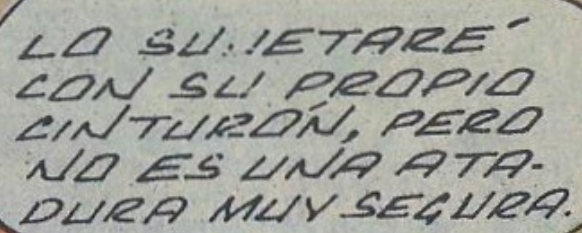 LO SUJETARÉ
CON SU PROPIO
CINTURÓN, PERO
NO ES UNA ATA-
DURA MUY SEGURA.